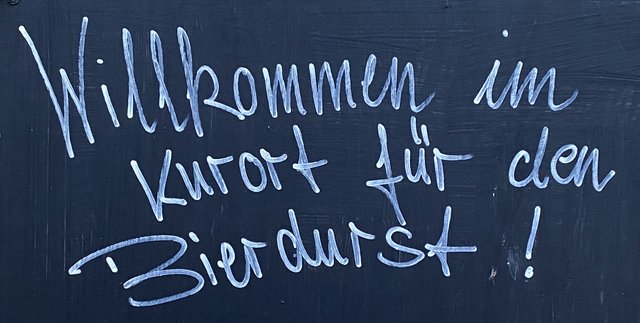 Willkommen im
Kurort für den
Bierdurst!